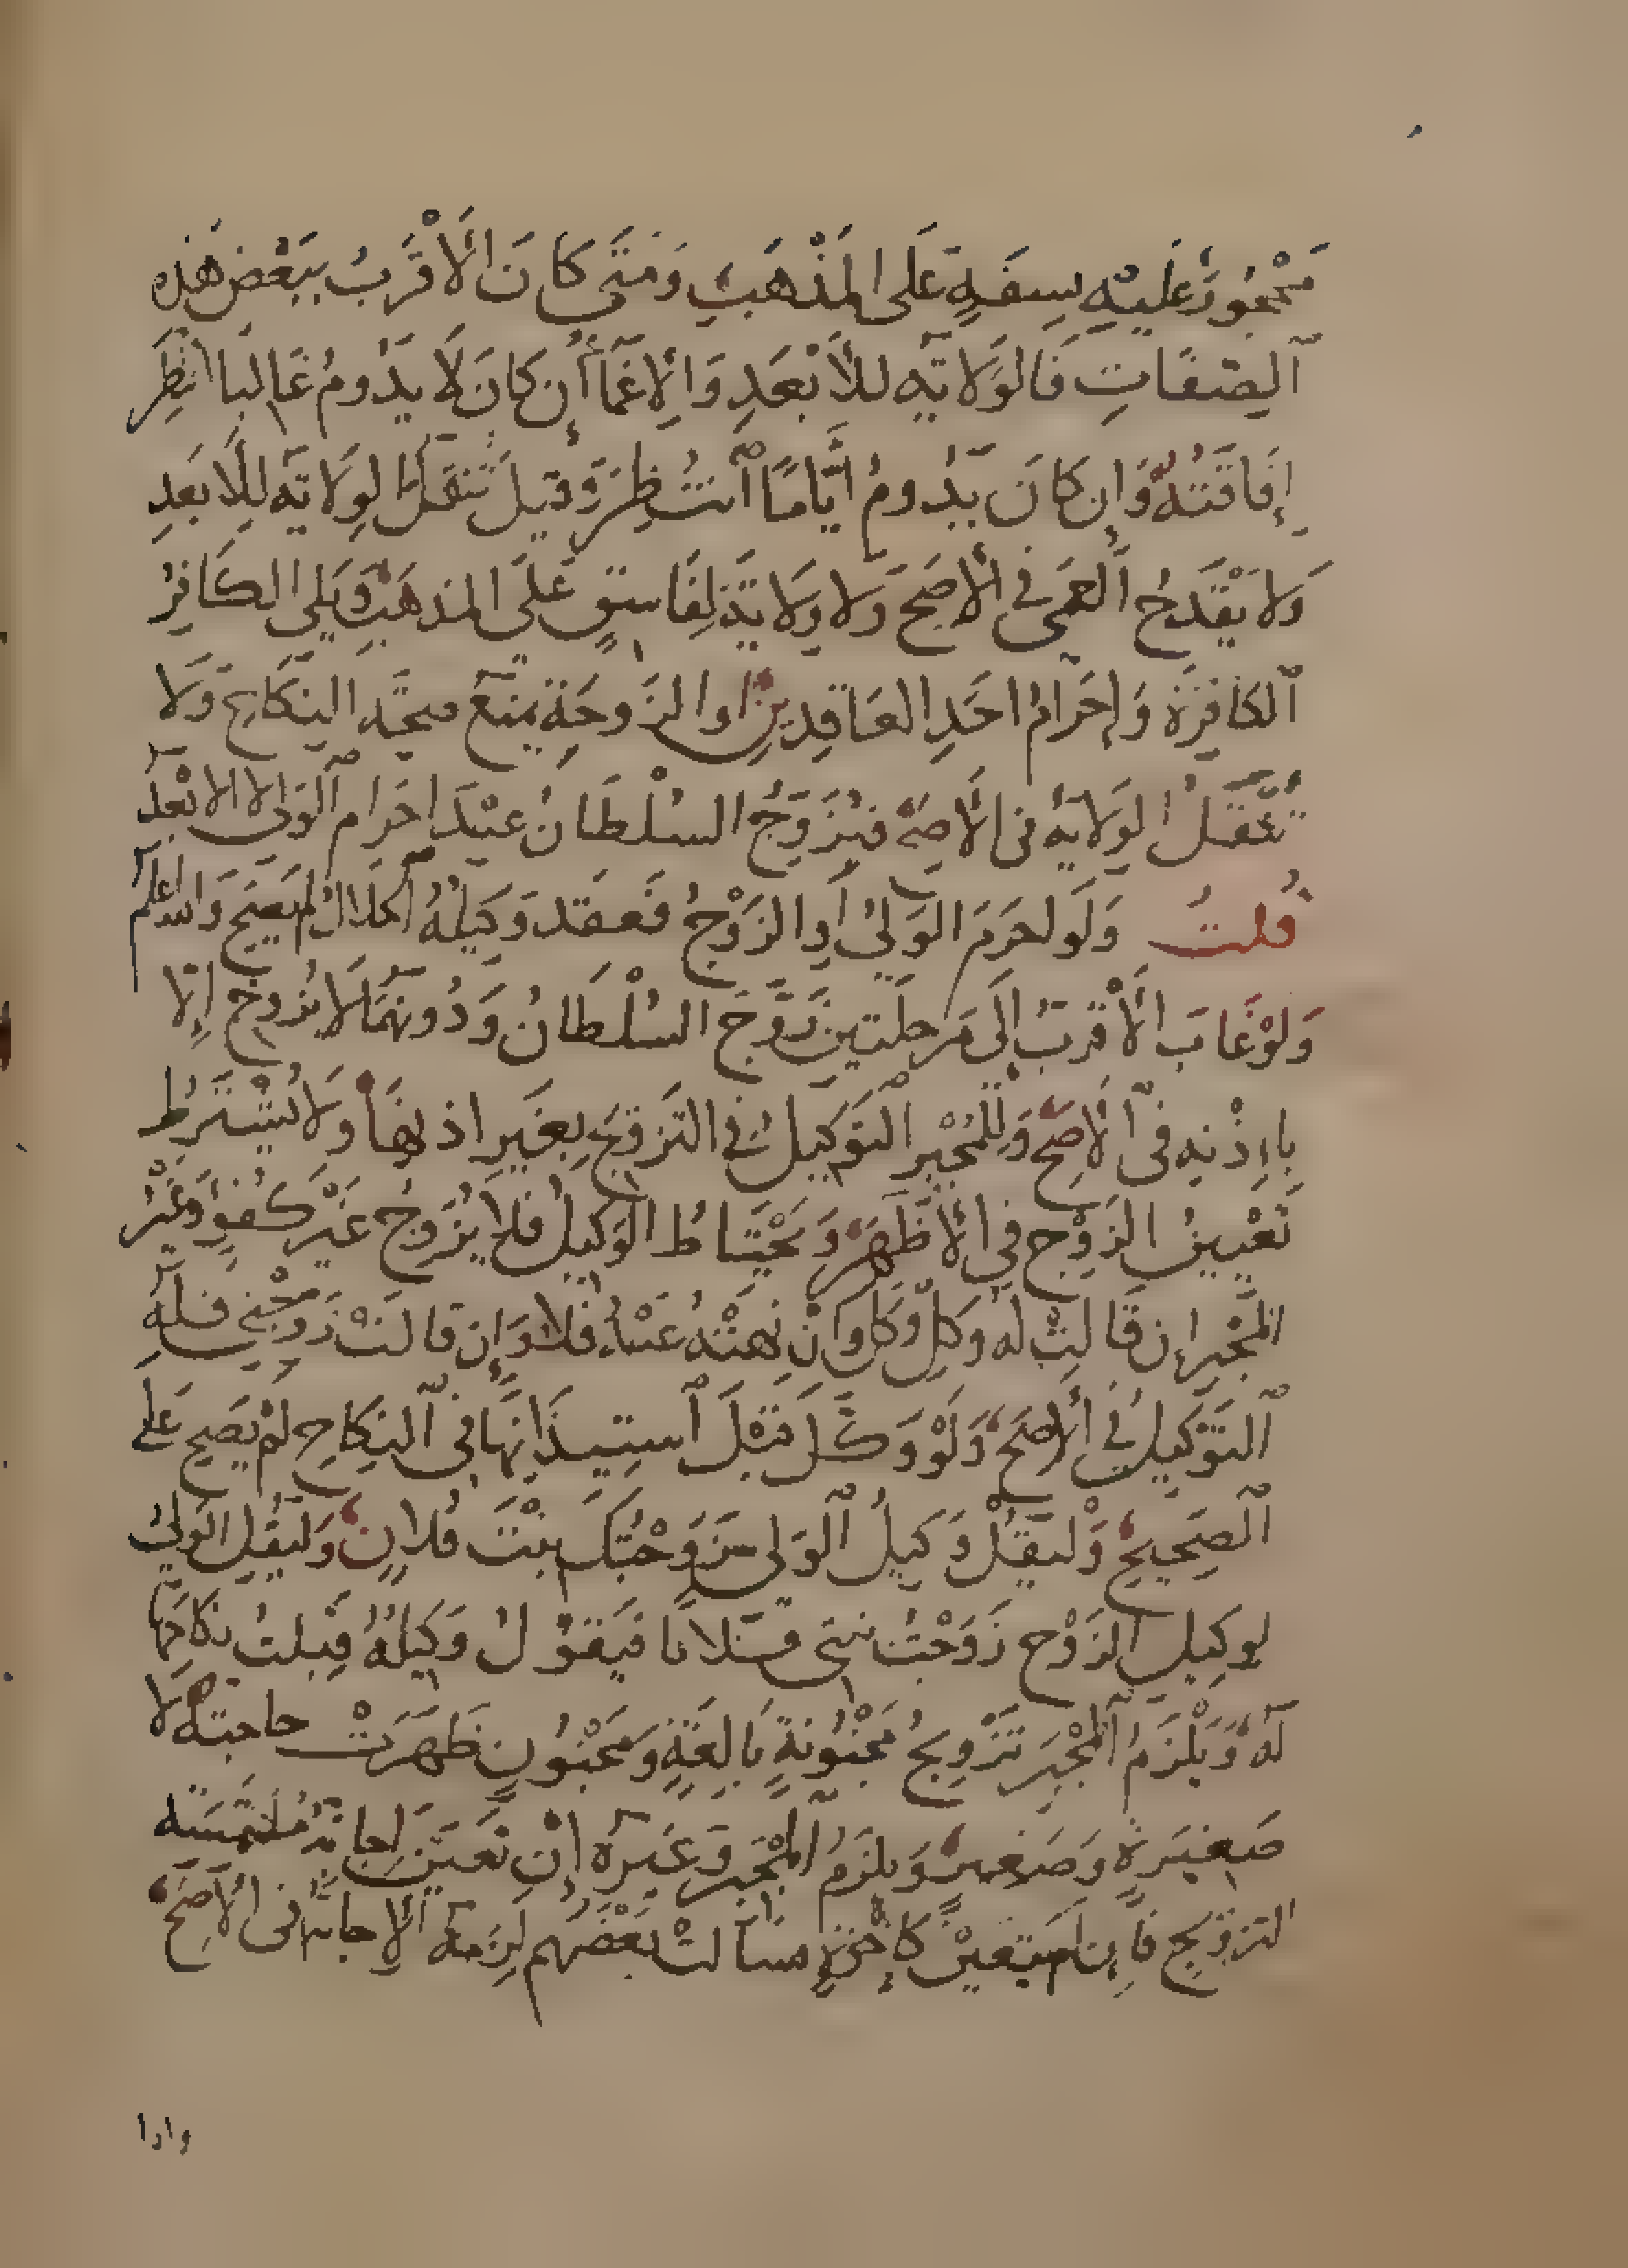 مَحْجُورٌ عَلَيْهِ بِسَفَهٍ عَلَى المَذْهَبِ وَمَتَى كَانَ الأَقْرَبُ بِبَعْضِ هَذِهِ
الصِّفَاتِ فَالوِلَايَةُ لِلأَبْعَدِ وَالإِغْمَاءُ إِن كَانَ لَا يَدُومُ غَالِبًا انْتُظِرَ
إِفَاقَتُهُ وَإِن كَانَ يَدُومُ أَيَّامًا انْتُظِرَ وَقِيلَ تَنْتَقِلُ الوِلَايَةُ لِلأَبْعَدِ
وَلَا يَقْدَحُ العَمَى فِي الأَصَحِّ وَلَا وِلَايَةَ لِفَاسِقٍ عَلَى المَذْهَبِ وَيَلِي الكَافِرُ
الكَافِرَةَ وَإِحْرَامُ أَحَدِ العَاقِدَيْنِ أَوِ الزَّوْجَةِ يَمْنَعُ صِحَّةَ النِّكَاحِ وَلَا
تَنْقُلُ الوِلَايَةَ فِي الأَصَحِّ فَيُزَوِّجُ السُّلْطَانُ عِنْدَ إِحْرَامِ الوَلِيِّ لَا الأَبْعَدُ
قُلْتُ وَلَو أَحْرَمَ الوَلِيُّ أَوِ الزَّوْجُ فَعَقَدَ وَكِيلُهُ الحَلَالُ لَمْ يَصِحَّ وَاللهُ أَعْلَمُ
وَلَوْ غَابَ الأَقْرَبُ إِلَى مَرْحَلَتَيْنِ زَوَّجَ السُّلْطَانُ وَدُونَهُمَا لَا يُزَوِّجُ إِلَّا
بِإِذْنِهِ فِي الأَصَحِّ وَلِلْمُجْبِرِ التَّوْكِيلُ فِي التَّزْوِيجِ بِغَيْرِ إِذْنِهَا وَلَا يُشْتَرَطُ
تَعْيِينُ الزَّوْجِ فِي الأَظْهَرِ وَيَحْتَاطُ الوَكِيلُ فَلَا يُزَوِّجُ غَيْرَ كُفْوٍ وَغَيْرُ
المُجْبِرِ إِن قَالَتْ لَهُ وَكِّلْ وَكَّلَ وَإِنْ نَهَتْهُ عَنْهُ فَلَا وَإِن قَالَتْ زَوِّجْنِي فَلَهُ
التَّوْكِيلُ فِي الأَصَحِّ وَلَوْ وَكَّلَ قَبْلَ اسْتِيذَانِهَا فِي النِّكَاحِ لَمْ يَصِحَّ عَلَى
الصَّحِيحِ وَلْيَقُلْ وَكِيلُ الوَلِيِّ زَوَّجْتُكَ بِنْتَ فُلَانٍ وَلْيَقُلِ الوَلِيُّ
لِوَكِيلِ الزَّوْجِ زَوَّجْتُ بِنْتِي فُلَانًا فَيَقُولُ وَكِيلُهُ قَبِلْتُ نِكَاحَهَا
لَهُ وَيَلْزَمُ المُجْبِرَ تَزْوِيجُ مَجْنُونَةٍ بَالِغَةٍ وَمَجْنُونٍ ظَهَرَتْ حَاجَتُهُ لَا
صَغِيرَةٍ وَصَغِيرٍ وَيَلْزَمُ المُجْبِرَ وَغَيْرَهُ إِنْ تَعَيَّنَ إِجَابَةُ مُلْتَمِسَةِ
التَّزْوِيجِ فَإِن لَمْ يَتَعَيَّنْ كَإِخْوَةٍ فَسَأَلَتْ بَعْضَهُمْ لَزِمَهُ الإِجَابَةُ فِي الأَصَحِّ
واذا